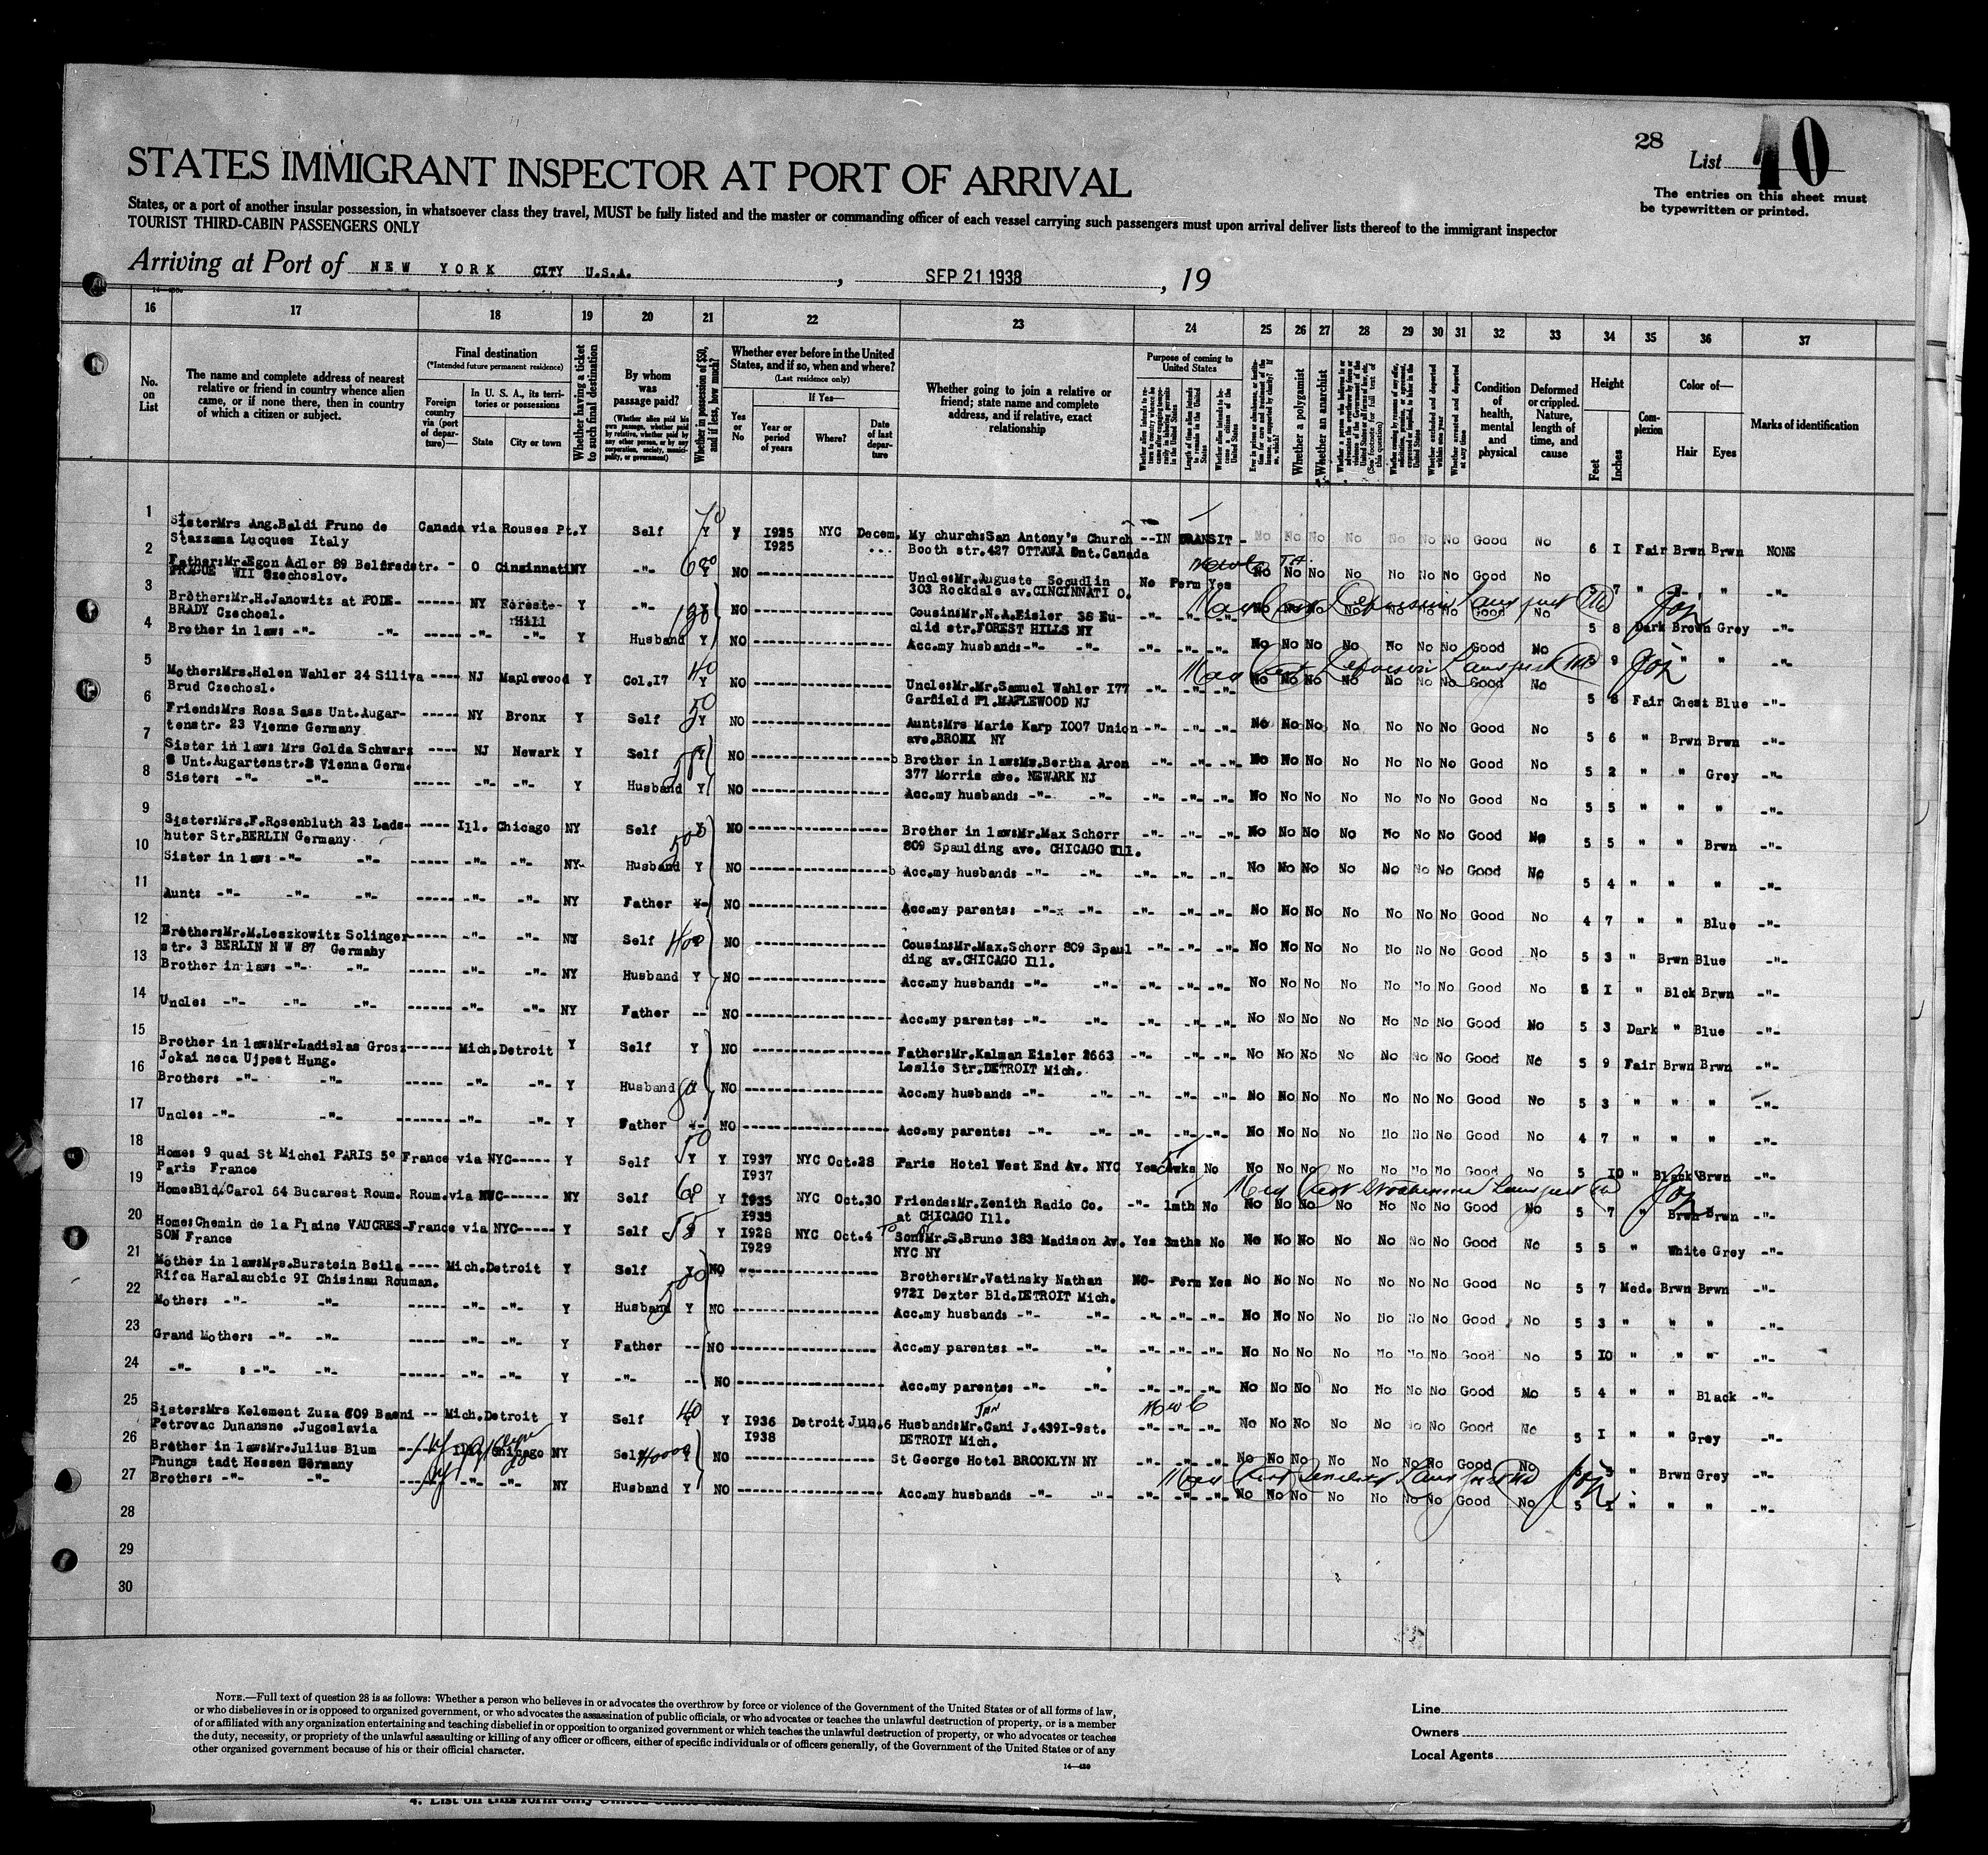 28
List 10
STATES IMMIGRANT INSPECTOR AT PORT OF ARRIVAL
The entries on this sheet must
be typewritten or printed.
States, or a port of another insular possession, in whatsoever class they travel, MUST be fully listed and the master or commanding officer of each vessel carrying such passengers must upon arrival deliver lists thereof to the immigrant inspector
TOURIST THIRD-CABIN PASSENGERS ONLY
Arriving at Port of NEW YORK CITY U.S.A. , SEP 21 1938 , 19
16 17 18 19 20 21 22 23 24 25 26 27 28 29 30 31 32 33 34 35 36 37
No. on List
The name and complete address of nearest relative or friend in country whence alien came, or if none there, then in country of which a citizen or subject.
Final destination
(*Intended future permanent residence)
Foreign country via (port of departure)—
In U. S. A., its territories or possessions
State
City or town
Whether having a ticket to such final destination
By whom was passage paid?
(Whether alien paid his own passage, whether paid by relative, whether paid by any other person, or by any corporation, society, municipality, or government)
Whether in possession of $50, and if less, how much?
Whether ever before in the United States, and if so, when and where?
(Last residence only)
Yes or No
If Yes—
Year or period of years
Where?
Date of last departure
Whether going to join a relative or friend; state name and complete address, and if relative, exact relationship
Purpose of coming to United States
Length of time alien intends to remain in the United States
Whether a polygamist
Whether an anarchist
Condition of health, mental and physical
Deformed or crippled. Nature, length of time, and cause
Height
Feet
Inches
Complexion
Color of—
Hair
Eyes
Marks of identification
1 SisterMrs Ang.Baldi Pruno de Canada via Rouses Pt. Y Self 70 Y y 1925 NYC Decem. My church:San Antony's Church --IN TRANSIT - No No No No No No No Good No 6 1 Fair Brwn Brwn NONE
Stazzama Lucques Italy 1925 ... Booth str.427 OTTAWA Ont.Canada
2 Father:Mr.Egon Adler 89 Belfredstr. - O Cincinnati NY -"- 680 NO Uncle:Mr.Auguste Socudlin No Perm Yes No No No No No No No Good No 5 7 " " -"-
PRAGUE WII Czechoslov. 303 Rockdale av.CINCINNATI O.
3 Brother:Mr.H.Janowitz at PODE- NY Forest- Y -"- NO Cousin:Mr.N.A.Eisler 36 Eu- -"- -"- -"- No Good No 5 8 Dark Brown Grey -"-
BRADY Czechosl. Hill clid str.FOREST HILLS NY
4 Brother in law: -"- -"- -"- -"- Y Husband Y NO Acc.my husband: -"- -"- -"- -"- -"- No No No No No No No Good No 9 " " -"-
5 Mother:Mrs.Helen Wahler 24 Siliva NJ Maplewood Y Col.17 40 Y NO Uncle:Mr.Mr.Samuel Wahler 177 -"- -"- -"- No No No No No No No Good No 5 8 Fair Chest Blue -"-
Brud Czechosl. Garfield Pl.MAPLEWOOD NJ
6 Friend:Mrs Rosa Sass Unt.Augar- NY Bronx Y Self 50 Y NO Aunt:Mrs Marie Karp 1007 Union -"- -"- -"- No No No No No No No Good No 5 6 " Brwn Brwn -"-
tenstr. 23 Vienne Germany ave.BRONX NY
7 Sister in law: Mrs Golda Schwarz NJ Newark Y Self Y NO Brother in law:Ms.Bertha Aron -"- -"- -"- No No No No No No No Good No 5 2 " " Grey -"-
8 Unt.Augartenstr.8 Vienna Germ. 377 Morris ave. NEWARK NJ
8 Sister: -"- -"- -"- -"- Y Husband Y NO Acc.my husband: -"- -"- -"- -"- -"- No No No No No No No Good No 5 5 " " " -"-
9 Sister:Mrs.F.Rosenbluth 23 Lads- Ill. Chicago NY Self Y NO Brother in law:Mr.Max Schorr -"- -"- -"- No No No No No No No Good No 5 5 " " Brwn -"-
huter Str.BERLIN Germany 500 809 Spaulding ave. CHICAGO Ill.
10 Sister in law: -"- -"- -"- -"- NY- Husband Y NO Acc.my husband: -"- -"- -"- -"- -"- No No No No No No No Good No 5 4 " " " -"-
11 Aunt: -"- -"- -"- -"- -"- NY Father NO Acc.my parents: -"- -"- -"- -"- -"- No No No No No No No Good No 4 7 " " Blue -"-
12 Brother:Mr.M.Leszkowitz Solinger -"- -"- NY Self 400 NO Cousin:Mr.Max.Schorr 809 Spaul -"- -"- -"- No No No No No No No Good No 5 3 " Brwn Blue -"-
str. 3 BERLIN N W 87 Germany ding av.CHICAGO Ill.
13 Brother in law: -"- -"- -"- -"- NY Husband Y NO Acc.my husband: -"- -"- -"- -"- -"- No No No No No No No Good No 5 1 " Blck Brwn -"-
14 Uncle: -"- -"- -"- -"- -"- NY Father -- NO Acc.my parents: -"- -"- -"- -"- -"- No No No No No No No Good No 5 3 Dark " Blue -"-
15 Brother in law:Mr.Ladislas Grosz Mich. Detroit Y Self Y NO Father:Mr.Kalman Eisler 2663 -"- -"- -"- No No No No No No No Good No 5 9 Fair Brwn Brwn -"-
Jokai neca Ujpest Hung. Leslie Str.DETROIT Mich.
16 Brother: -"- -"- -"- -"- Y Husband NO Acc.my husband: -"- -"- -"- -"- -"- No No No No No No No Good No 5 3 " " " -"-
17 Uncle: -"- -"- -"- -"- Y Father NO Acc.my parents: -"- -"- -"- -"- -"- No No No No No No No Good No 4 7 " " " -"-
18 Home: 9 quai St Michel PARIS 5° France via NYC Y Self 50 Y Y 1937 NYC Oct.28 Paris Hotel West End Av. NYC Yes wks No No No No No No No No Good No 5 10 " Black Brwn -"-
Paris France 1937
19 Home:Bld.Carol 64 Bucarest Roum. Roum.via NYC NY Self 60 Y Y 1935 NYC Oct.30 Friend:Mr.Zenith Radio Co. -"- 1mth No No No No No No No No Good No 5 7 " Brwn Brwn -"-
1935 at CHICAGO Ill.
20 Home:Chemin de la Plaine VAUCRES- France via NYC Y Self 55 Y 1928 NYC Oct.4 Son:Mr.S.Bruno 383 Madison Av. Yes 3mths No No No No No No No No Good No 5 5 " White Grey -"-
SON France 1929 NYC NY
21 Mother in law:Mrs.Burstein Beila Mich. Detroit Y Self Y NO Brother:Mr.Vatinsky Nathan NO- Perm Yes No No No No No No No Good No 5 7 Med. Brwn Brwn -"-
Rifca Haralaucbic 91 Chisinau Rouman. 500 9721 Dexter Bld.DETROIT Mich.
22 Mother: -"- -"- -"- -"- Y Husband Y NO Acc.my husband: -"- -"- -"- -"- -"- No No No No No No No Good No 5 3 " " " -"-
23 Grand Mother: -"- -"- -"- -"- Y Father -- NO Acc.my parents: -"- -"- -"- -"- -"- No No No No No No No Good No 5 10 " " " -"-
24 -"- : -"- -"- -"- -"- Y -"- -- NO Acc.my parents: -"- -"- -"- -"- -"- No No No No No No No Good No 5 4 " " Black -"-
25 Sister:Mrs Kelement Zuza 609 Basni -- Mich. Detroit Y Self 40 Y Y 1936 Detroit Jun.6 Husband:Mr.Gani J.4391-9st. No No No No No No No Good No 5 1 " " Grey -"-
Petrovac Dunansne .Jugoslavia 1938 DETROIT Mich.
26 Brother in law:Mr.Julius Blum Chicago NY Self Y NO St George Hotel BROOKLYN NY -"- -"- -"- No No No No No No No Good No " Brwn Grey -"-
Phungs tadt Hessen Germany
27 Brother: -"- -"- -"- -"- NY Husband Y NO Acc.my husband: -"- -"- -"- -"- -"- No No No No No No No Good No 5 1 " " " -"-
28
29
30
NOTE.—Full text of question 28 is as follows: Whether a person who believes in or advocates the overthrow by force or violence of the Government of the United States or of all forms of law,
or who disbelieves in or is opposed to organized government, or who advocates the assassination of public officials, or who advocates or teaches the unlawful destruction of property, or is a member
of or affiliated with any organization entertaining and teaching disbelief in or opposition to organized government or which teaches the unlawful destruction of property, or who advocates or teaches
the duty, necessity, or propriety of the unlawful assaulting or killing of any officer or officers, either of specific individuals or of officers generally, of the Government of the United States or of any
other organized government because of his or their official character.
14—430
Line
Owners
Local Agents